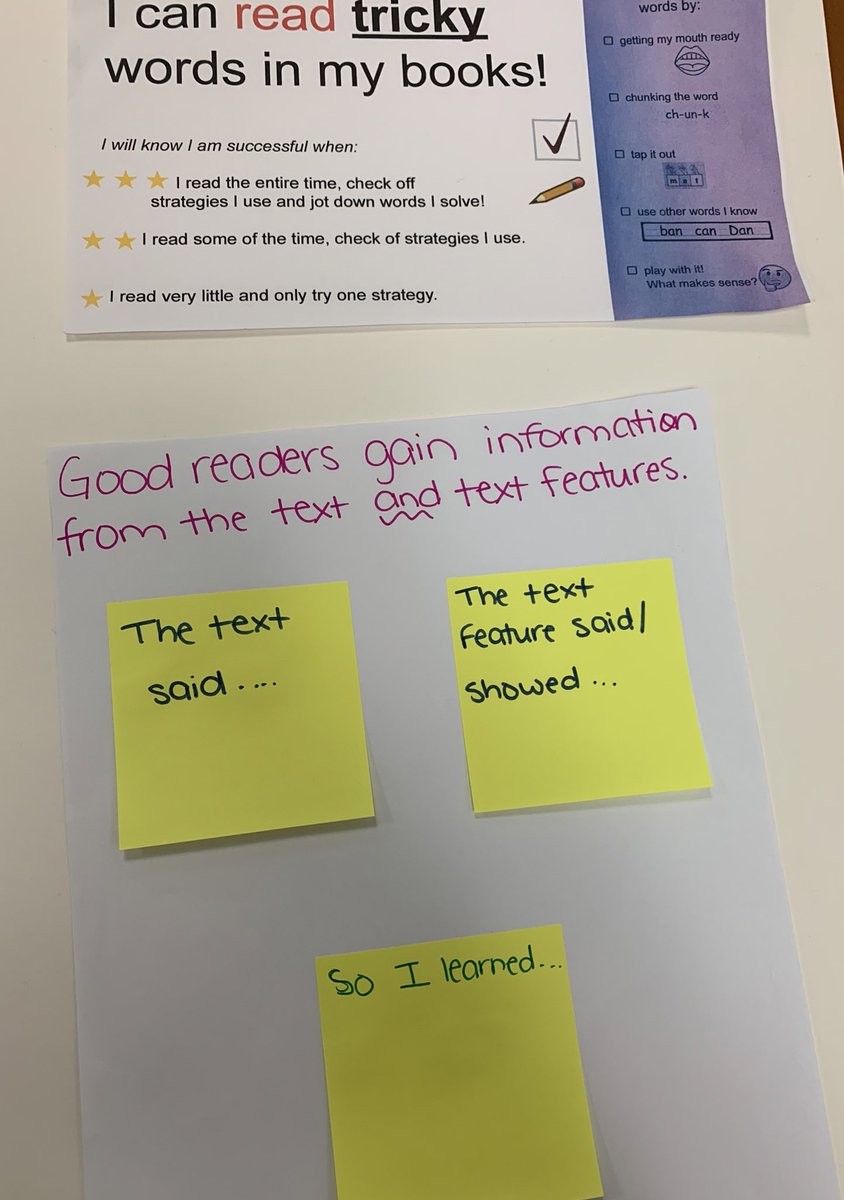 I can read tricky
words in my books!
I will know I am successful when:
I read the entire time, check off
strategies I use and jot down words I solve!
I read some of the time, check of strategies I use.
I read very little and only try one strategy.
words by:
getting my mouth ready
chunking the word
ch-un-k
tap it out
m a t
use other words I know
ban can Dan
play with it!
What makes sense?
Good readers gain information
from the text and text features.
The text
said ....
The text
feature said/
showed ...
So I learned...